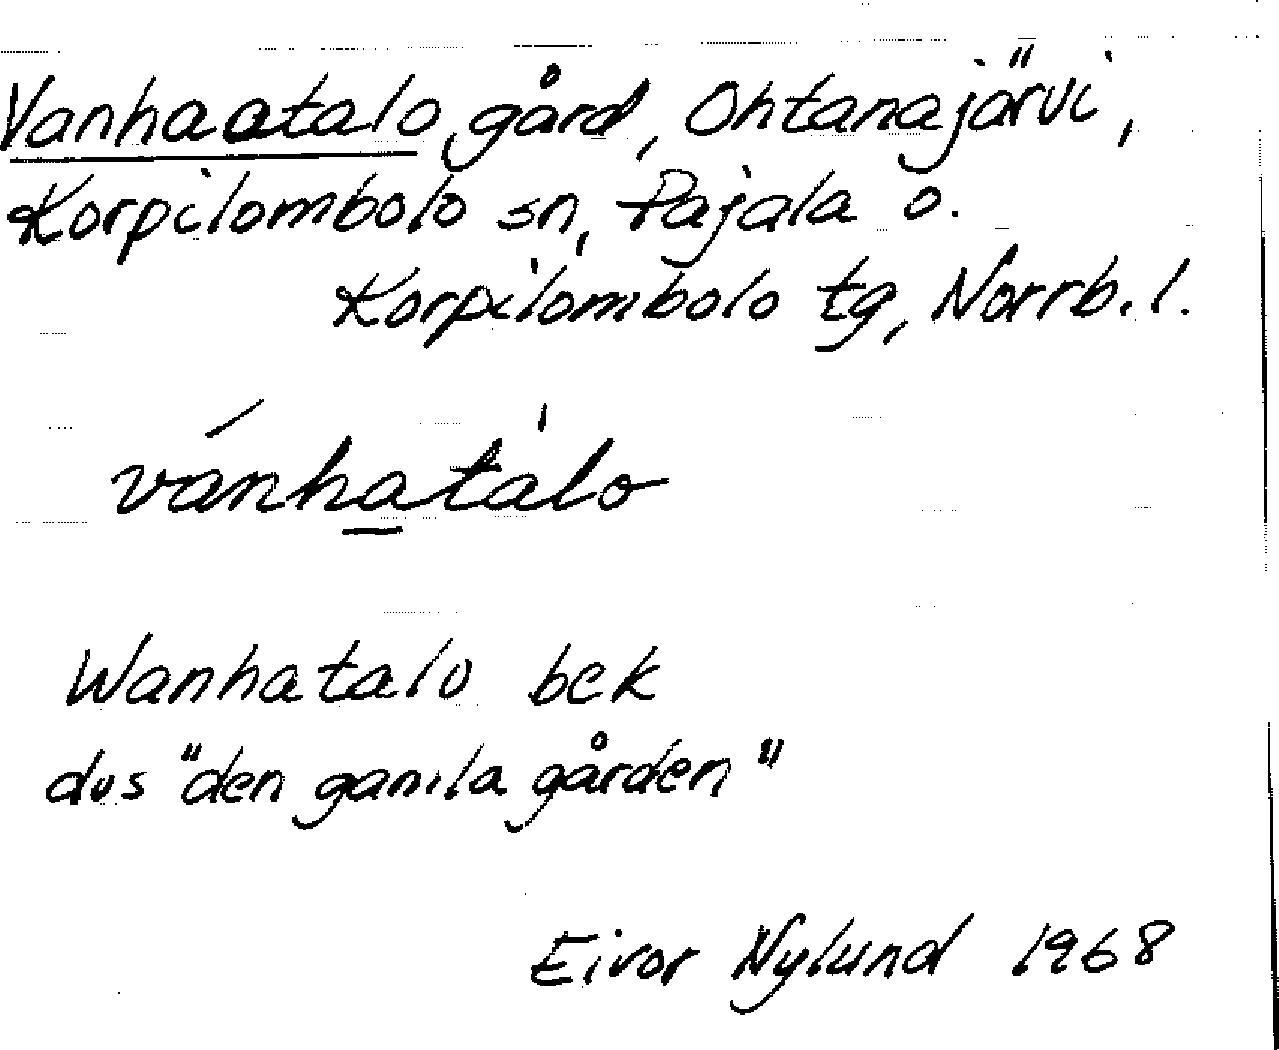 Vanhaatalo, gård, Ohtanajärvi,
Korpilombolo sn, Pajala o.
Korpilombolo tg, Norrb. l.
vánhata̍lo
Wanhatalo bek
dvs "den gamla gården"
Eivor Nylund 1968